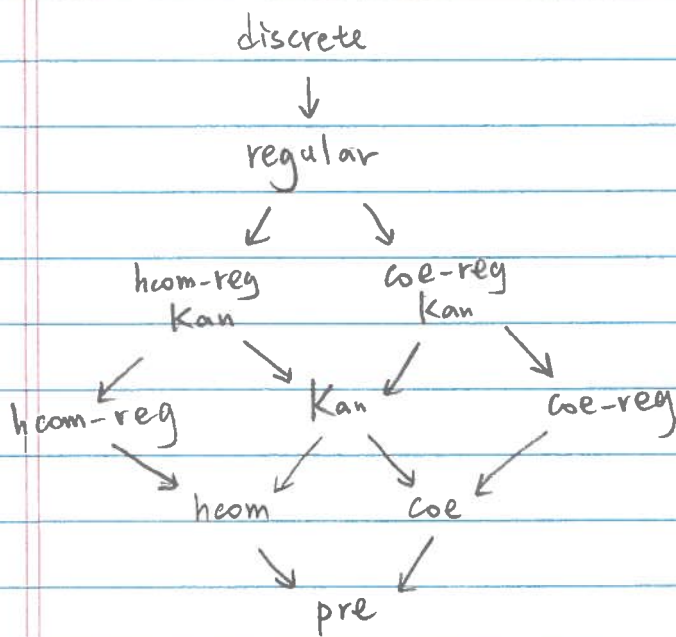 discrete
regular
hcom-reg coe-reg
Kan Kan
hcom-reg Kan coe-reg
hcom coe
pre